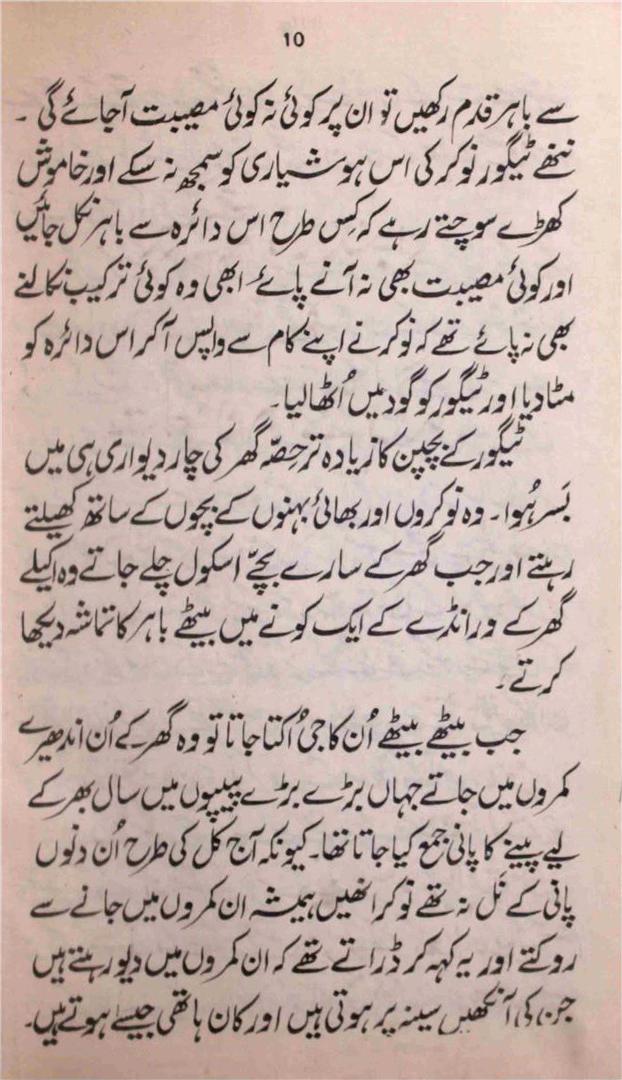 10
سے باہر قدم رکھیں تو ان پر کوئی نہ کوئی مصیبت آجائے گی ۔
ننھے ٹیگور نوکر کی اس ہوشیاری کو سمجھ نہ سکے اور خاموش
کھڑے سوچتے رہے کہ کِس طرح اس دائرہ سے باہر نکل جائیں
اور کوئی مصیبت بھی نہ آنے پائے۔ ابھی وہ کوئی ترکیب نکالنے
بھی نہ پائے تھے کہ نوکر نے اپنے کام سے واپس آکر اس دائرہ کو
مٹا دیا اور ٹیگور کو گود میں اُٹھا لیا۔
ٹیگور کے بچپن کا زیادہ تر حِصّہ گھر کی چار دیواری ہی میں
بَسر ہُوا۔ وہ نوکروں اور بھائی بہنوں کے بچوں کے ساتھ کھیلتے
رہتے اور جب گھر کے سارے بچّے اسکول چلے جاتے وہ اکیلے
گھر کے ورانڈے کے ایک کونے میں بیٹھے باہر کا تماشہ دیکھا
کرتے۔
جب بیٹھے بیٹھے اُن کا جی اُکتا جاتا تو وہ گھر کے اُن اندھیرے
کمروں میں جاتے جہاں بڑے بڑے پیپوں میں سال بھر کے
لیے پینے کا پانی جمع کیا جاتا تھا۔ کیونکہ آج کل کی طرح اُن دنوں
پانی کے نَل نہ تھے نوکر انھیں ہمیشہ ان کمروں میں جانے سے
روکتے اور یہ کہہ کر ڈراتے تھے کہ ان کمروں میں دیو رہتے ہیں
جن کی آنکھیں سینہ پر ہوتی ہیں اور کان ہاتھی جیسے ہوتے ہیں۔